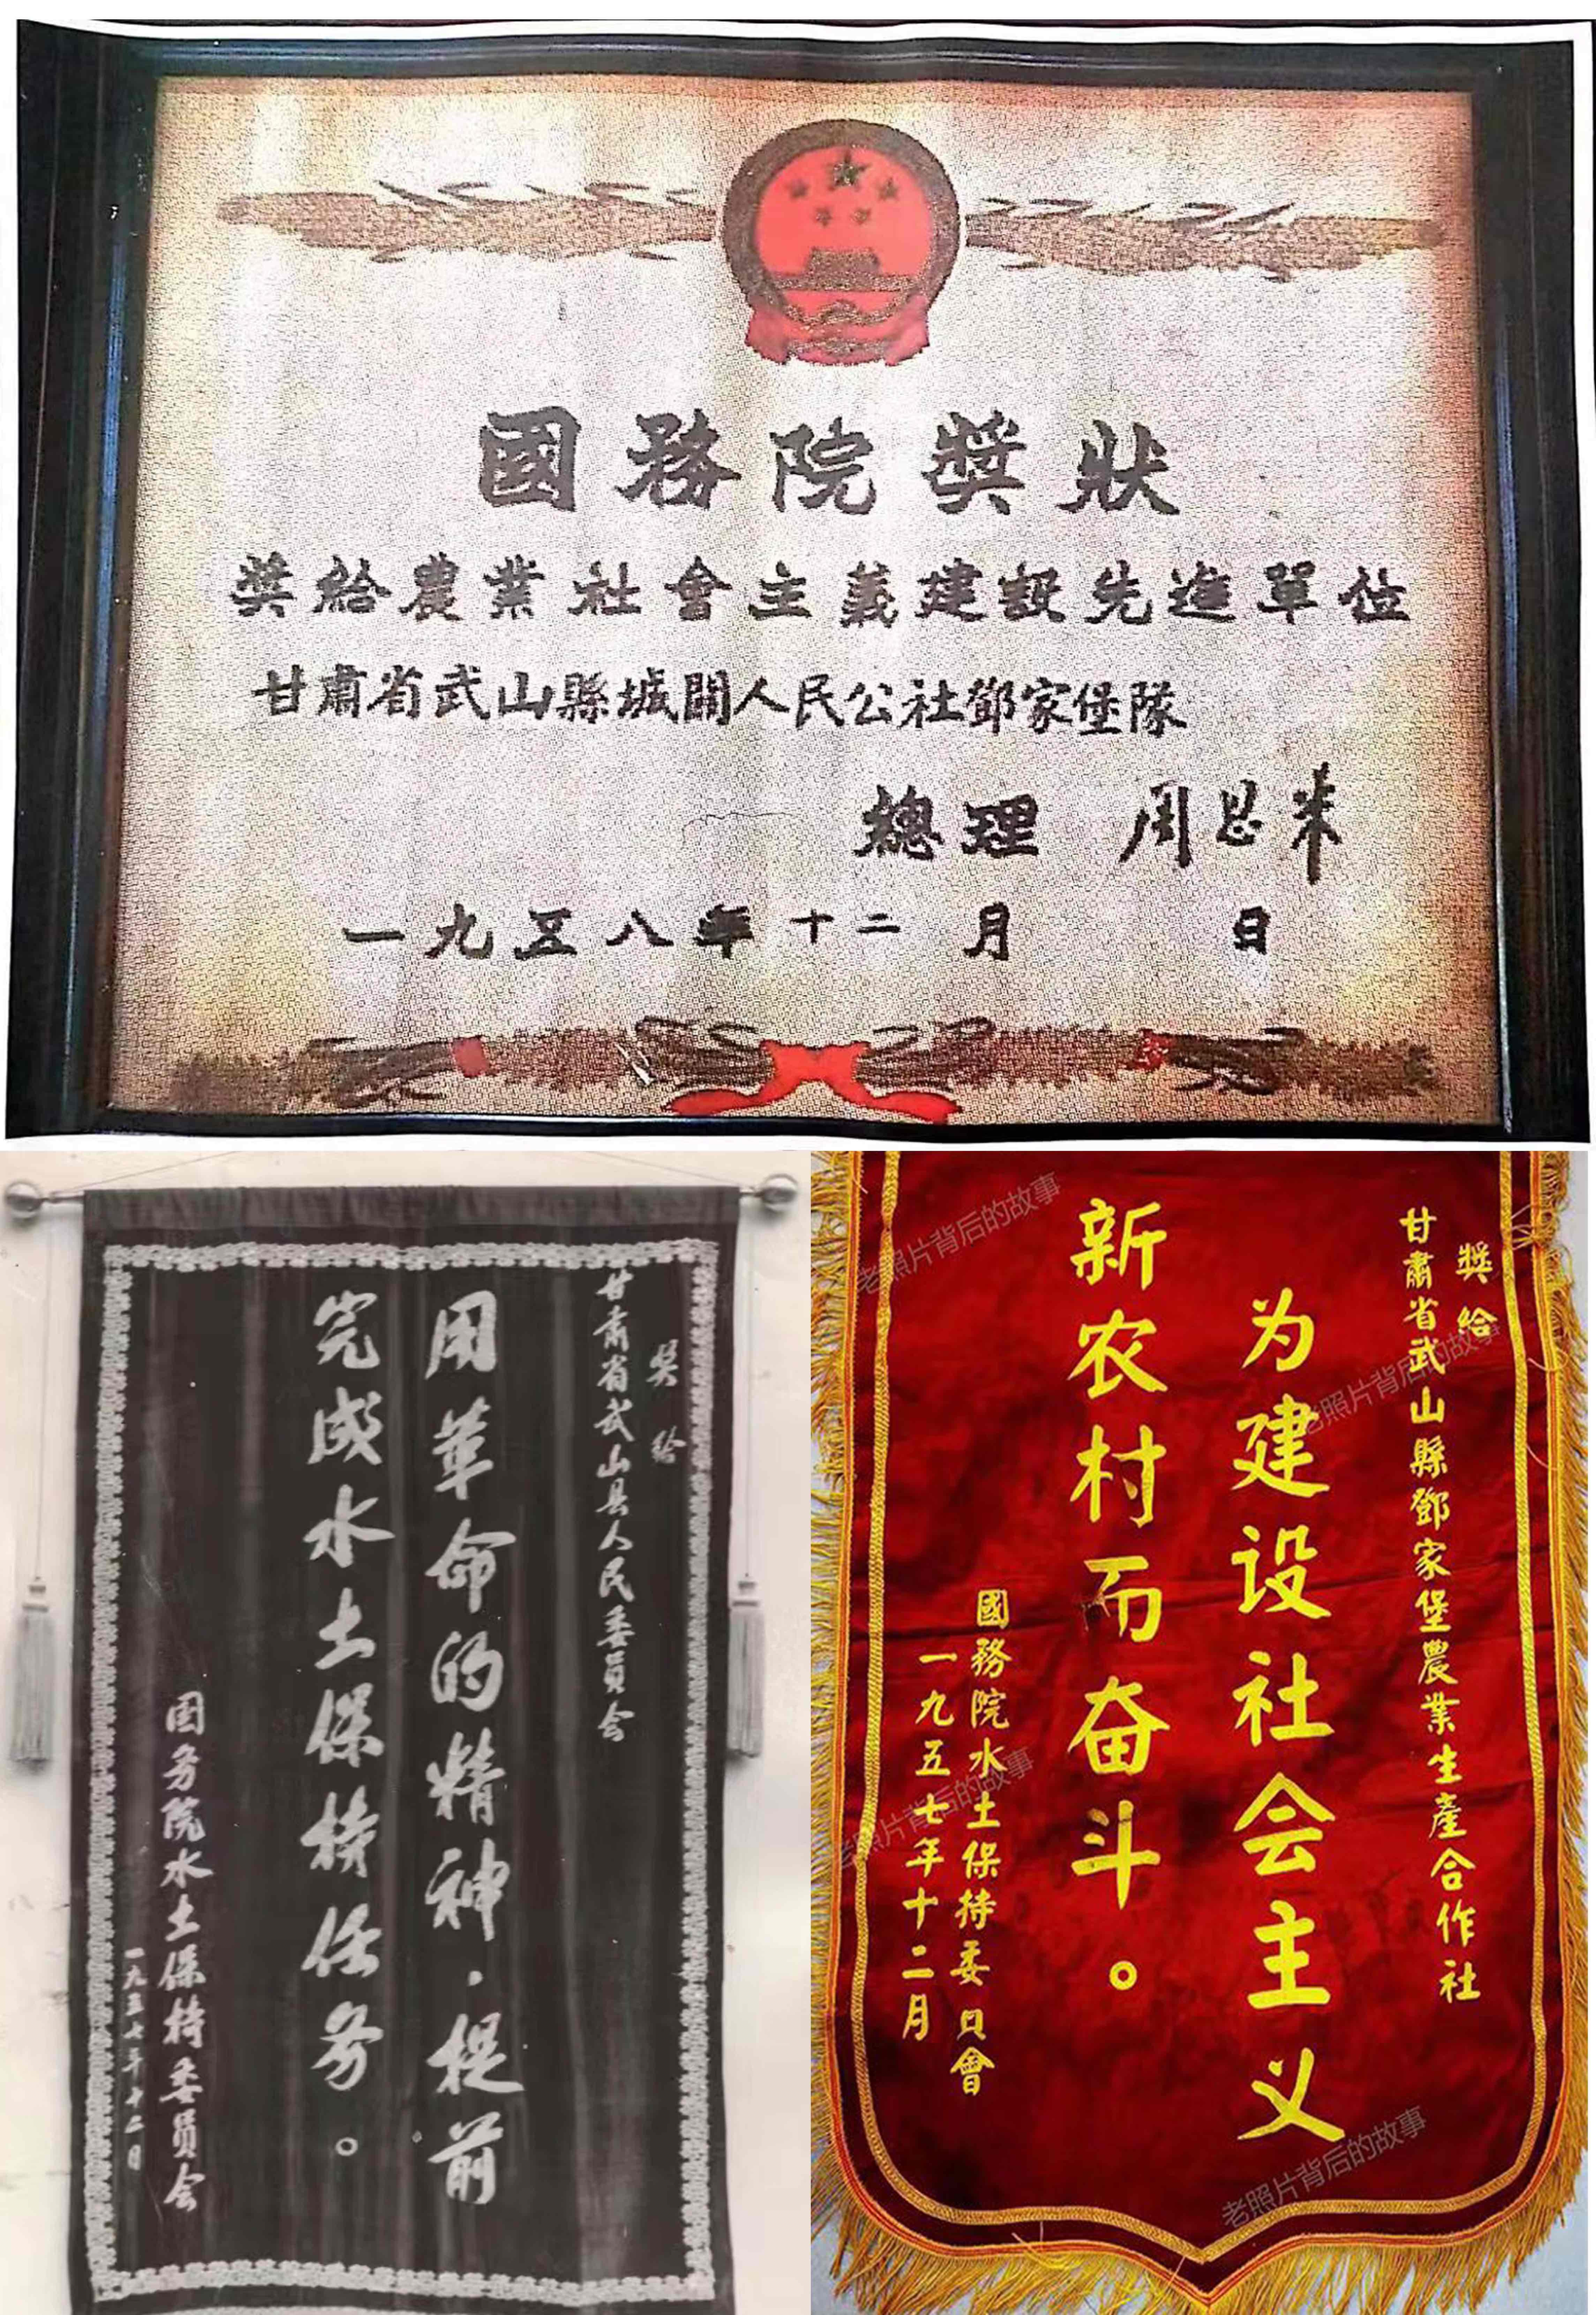 國務院獎狀
獎給農業社會主義建設先進單位
甘肅省武山縣城關人民公社鄧家堡隊
總理 周恩来
一九五八年十二月 日
奖给
甘肃省武山县人民委员会
用革命的精神，提前
完成水土保持任务。
国务院水土保持委员会
一九五七年十二月
獎给
甘肅省武山縣鄧家堡農業生產合作社
为建设社会主义
新农村而奋斗。
國務院水土保持委員會
一九五七年十二月
老照片背后的故事
老照片背后的故事
老照片背后的故事
老照片背后的故事